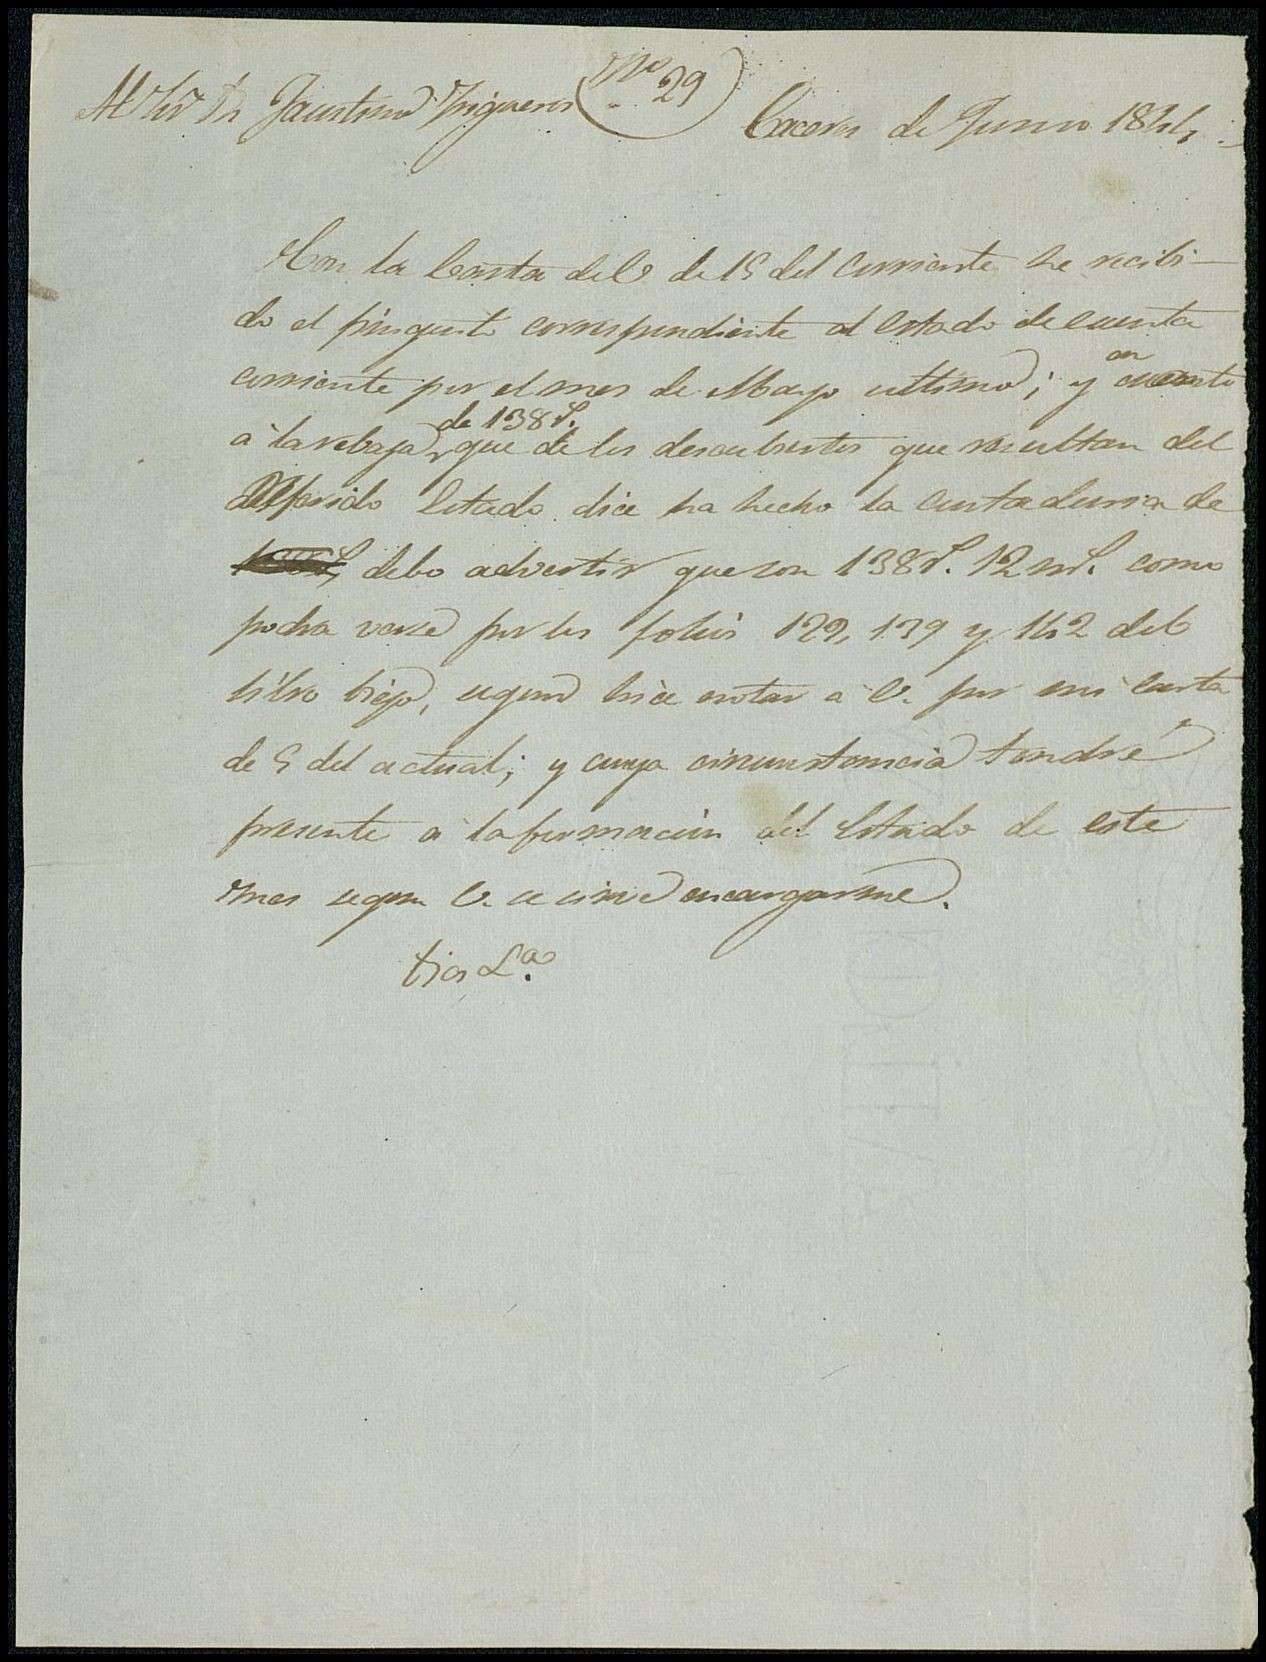 Al Sor Dn Faustino Trigueros
No 29
Caceres de Junio 1844.
Con la Carta de V de 15 del corriente he recibi-
do el finiquito correspondiente al estado de cuenta
corriente por el mes de Mayo ultimo; y en cuanto
a la rebaja de 138 rs. que de los descubiertos que resultan del
referido Estado dice ha hecho la contaduria de
debo advertir que son 138 rs. 12 ms. como
podra verse por los folios 129, 139 y 142 del
libro biejo, segun hice notar a V. por mi carta
de 5 del actual; y cuya circunstancia tendré
presente a la formacion del Estado de este
mes segun V. se sirve encargarme.